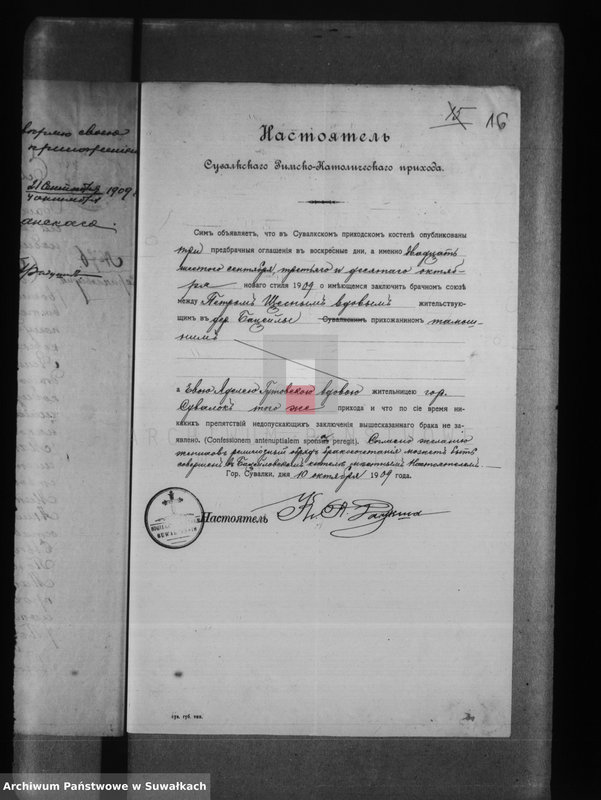 вѣрно съ своею
приложеніемъ
21 Сентября 1909
4 октября
15 16
Настоятель
Сувалкскаго Римско-Католическаго прихода.
Симъ объявляетъ, что въ Сувалкскомъ приходскомъ костелѣ опубликованы
три предбрачныя оглашенія въ воскресные дни, а именно двадцать
шестого сентября, третьяго и десятаго октяб-
ря новаго стиля 1909 о имѣющемся заключить брачномъ союзѣ
между Петромъ Щеснымъ вдовымъ жительствую-
щимъ въ дер. Бацейлы Сувалкскимъ прихожаниномъ тамош-
нимъ
а Евою Аделею Гутовскою вдовою жительницею гор.
Сувалокъ того же прихода и что по сіе время ни-
какихъ препятствій недопускающихъ заключенія вышесказаннаго брака не за-
явлено. (Confessionem antenuptialem sponsa peregit). Согласно желанію
жениховъ религіозный обрядъ бракосочетанія можетъ быть
совершенъ въ костелѣ мѣстнымъ Настоятелемъ
Гор. Сувалки, дня 10 октября 1909 года.
Настоятель Кс. А.
Сув. губ. тип.
Archiwum Państwowe w Suwałkach